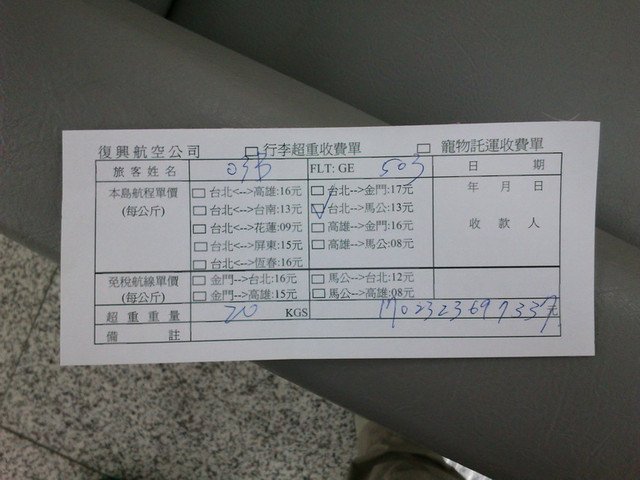 復興航空公司 □行李超重收費單 □ 寵物託運收費單
旅客姓名 03B FLT: GE 503 日 期
本島航程單價 (每公斤) □台北<-->高雄:16元 ☑台北-->金門:17元 年 月 日
□台北<-->台南:13元 □台北-->馬公:13元
□台北<-->花蓮:09元 □高雄-->金門:16元 收 款 人
□台北<-->屏東:15元 □高雄-->馬公:08元
□台北<-->恆春:16元
免稅航線單價 (每公斤) □金門-->台北:16元 □馬公-->台北:12元
□金門-->高雄:15元 □馬公-->高雄:08元
超重重量 20 KGS 元
備 註